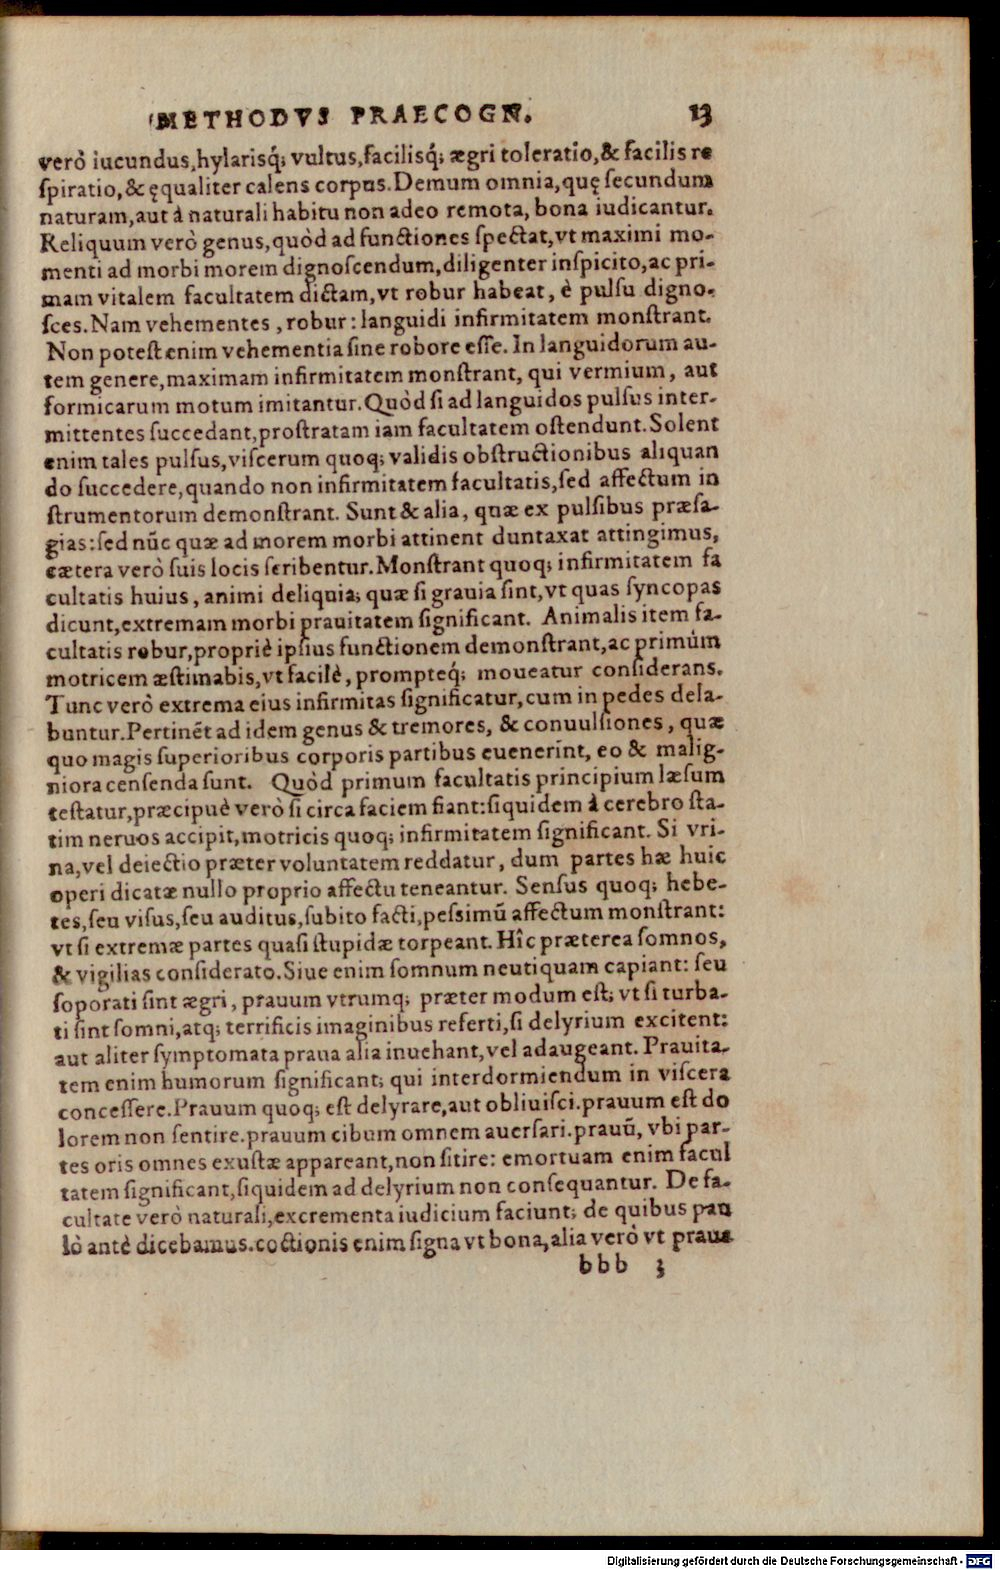 METHODVS PRAECOGN. 13
verò iucundus, hylarisq́; vultus, facilisq́; ægri toleratio, & facilis re
spiratio, & ęqualiter calens corpus. Demum omnia, quę secundum
naturam, aut à naturali habitu non adeo remota, bona iudicantur.
Reliquum verò genus, quòd ad functiones spectat, vt maximi mo-
menti ad morbi morem dignoscendum, diligenter inspicito, ac pri-
mam vitalem facultatem dictam, vt robur habeat, è pulsu digno-
sces. Nam vehementes, robur: languidi infirmitatem monstrant.
Non potest enim vehementia sine robore esse. In languidorum au-
tem genere, maximam infirmitatem monstrant, qui vermium, aut
formicarum motum imitantur. Quòd si ad languidos pulsus inter-
mittentes succedant, prostratam iam facultatem ostendunt. Solent
enim tales pulsus, viscerum quoq; validis obstructionibus aliquan
do succedere, quando non infirmitatem facultatis, sed affectum in
strumentorum demonstrant. Sunt & alia, quæ ex pulsibus præsa-
gias: sed nūc quæ ad morem morbi attinent duntaxat attingimus,
cætera verò suis locis scribentur. Monstrant quoq; infirmitatem fa
cultatis huius, animi deliquia; quæ si grauia sint, vt quas syncopas
dicunt, extremam morbi prauitatem significant. Animalis item fa-
cultatis robur, propriè ipsius functionem demonstrant, ac primùm
motricem æstimabis, vt facilè, prompteq́; moueatur considerans.
Tunc verò extrema eius infirmitas significatur, cum in pedes dela-
buntur. Pertinēt ad idem genus & tremores, & conuulsiones, quæ
quo magis superioribus corporis partibus euenerint, eo & malig-
niora censenda sunt. Quòd primum facultatis principium læsum
testatur, præcipuè verò si circa faciem fiant: siquidem à cerebro sta-
tim neruos accipit, motricis quoq; infirmitatem significant. Si vri-
na, vel deiectio præter voluntatem reddatur, dum partes hæ huic
operi dicatæ nullo proprio affectu teneantur. Sensus quoq; hebe-
tes, seu visus, seu auditus, subito facti, pessimū affectum monstrant:
vt si extremæ partes quasi stupidæ torpeant. Hîc præterea somnos,
& vigilias considerato. Siue enim somnum neutiquam capiant: seu
soporati sint ægri, prauum vtrumq; præter modum est; vt si turba-
ti sint somni, atq; terrificis imaginibus referti, si delyrium excitent:
aut aliter symptomata praua alia inuehant, vel adaugeant. Prauita-
tem enim humorum significant; qui interdormiendum in viscera
concessere. Prauum quoq; est delyrare, aut obliuisci. prauum est do
lorem non sentire. prauum cibum omnem auersari. prauū, vbi par-
tes oris omnes exustæ appareant, non sitire: emortuam enim facul
tatem significant, siquidem ad delyrium non consequantur. De fa-
cultate verò naturali, excrementa iudicium faciunt; de quibus pau
lò antè dicebamus. coctionis enim signa vt bona, alia verò vt praua
bbb 3
Digitalisierung gefördert durch die Deutsche Forschungsgemeinschaft - DFG